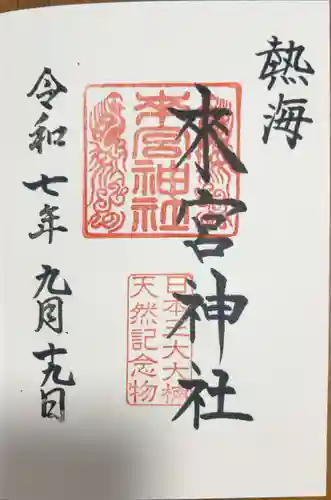 熱海
來宮神社
令和七年九月十九日
来宮神社
日本三大大楠
天然記念物